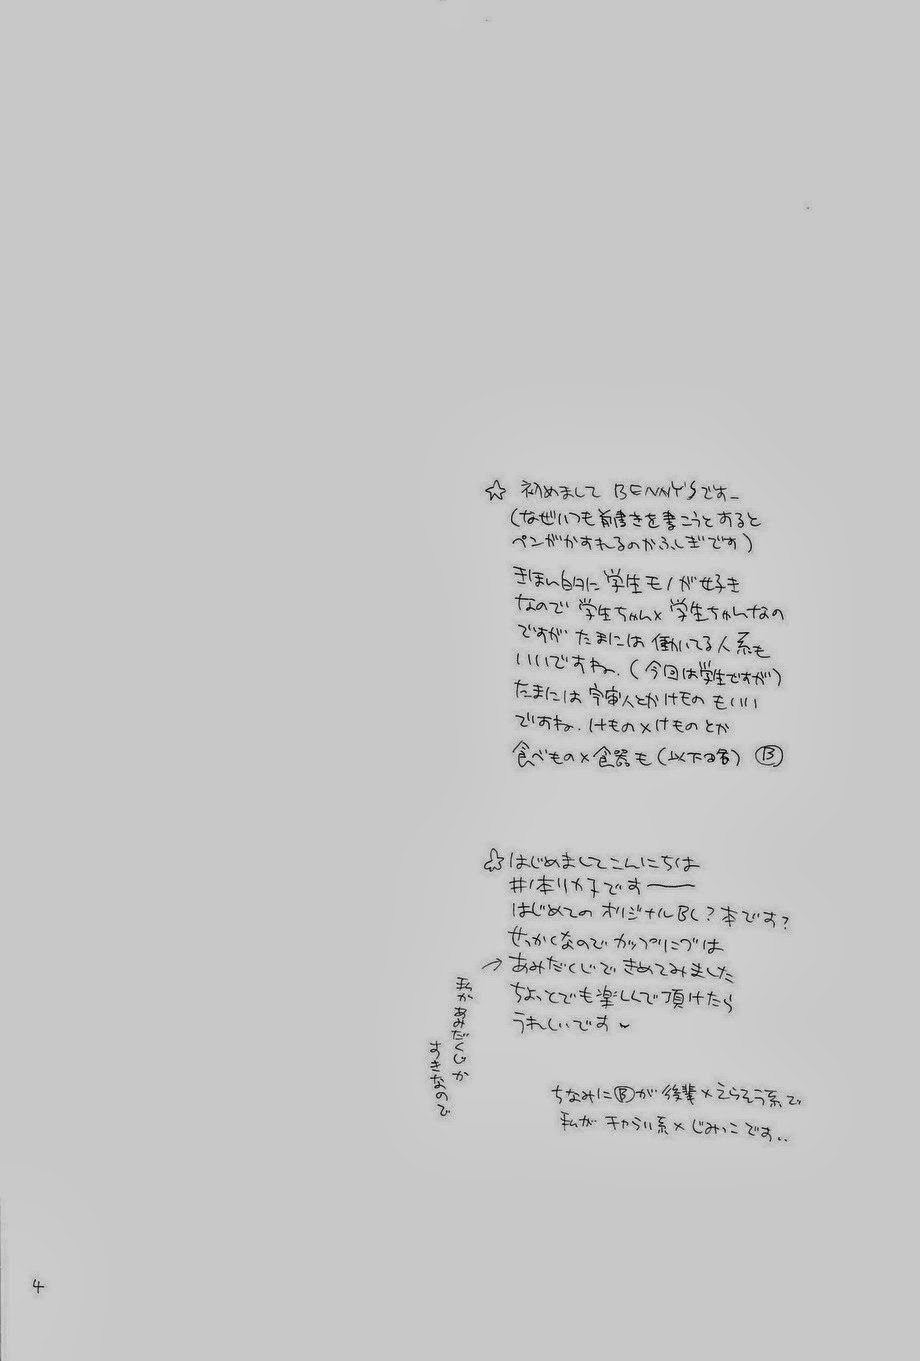 ☆ 初めまして BENNY'Sです_
(なぜいつも前書きを書こうとすると
ペンがかすれるのかふしぎです)
きほん的に学生モノが好き
なので学生ちゃん×学生ちゃんなの
ですがたまには働いてる人系も
いいですね.(今回は学生ですが)
たまには宇宙人とかけものもいい
ですね.けもの×けものとか
食べもの×食器も(以下略) Ⓑ
☆はじめましてこんにちは
井本リカ子です――
はじめてのオリジナルBL?本です?
せっかくなのでカップリングは
→あみだくじできめてみました
ちょっとでも楽しんで頂けたら
うれしいです
私があみだくじが
すきなので
ちなみにⒷが後輩×えらそう系で
私がチャらい系×じみっこです..
4